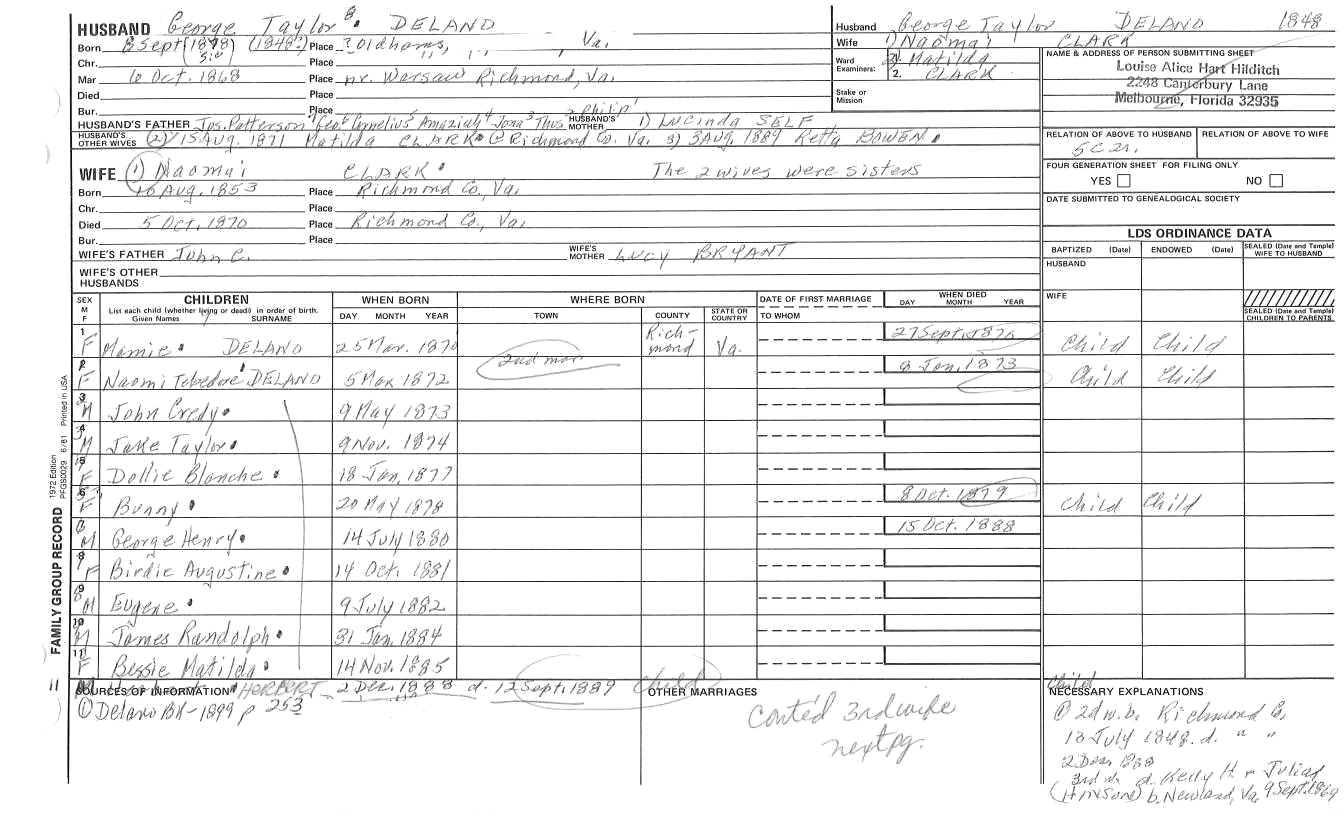 HUSBAND George Taylor 8. DELAND
Born 8 Sept (1878) (1848?) Place ? Oldhams, , , Va.
(Sic)
Chr. Place
Mar 6 Oct. 1868 Place nr. Warsaw Richmond, Va.
Died Place
Bur. Place
HUSBAND'S FATHER Jos. Patterson Geo Cornelius Amaziah 4 Jona 3 Thos 2 Philip 1 HUSBAND'S MOTHER 1) Lucinda SELF
HUSBAND'S OTHER WIVES (2) 15 Aug. 1871 Matilda CLARK @ Richmond Co. Va. 3) 3 Aug. 1889 Retta BOWEN.
WIFE (1) Naomai CLARK. The 2 wives were sisters
Born 16 Aug. 1853 Place Richmond Co., Va.
Chr. Place
Died 5 Oct. 1870 Place Richmond Co., Va.
Bur. Place
WIFE'S FATHER John C. WIFE'S MOTHER Lucy BRYANT
WIFE'S OTHER HUSBANDS
Husband George Taylor DELAND 1848
Wife 1) Naomai CLARK
Ward Examiners: 1. 2) Matilda
2. CLARK
Stake or Mission
NAME & ADDRESS OF PERSON SUBMITTING SHEET
Louise Alice Hart Hilditch
2248 Canterbury Lane
Melbourne, Florida 32935
RELATION OF ABOVE TO HUSBAND RELATION OF ABOVE TO WIFE
5C2r.
FOUR GENERATION SHEET FOR FILING ONLY
YES NO
DATE SUBMITTED TO GENEALOGICAL SOCIETY
LDS ORDINANCE DATA
BAPTIZED (Date) ENDOWED (Date) SEALED (Date and Temple) WIFE TO HUSBAND
HUSBAND
WIFE
SEALED (Date and Temple) CHILDREN TO PARENTS
SEX M F CHILDREN WHEN BORN WHERE BORN DATE OF FIRST MARRIAGE WHEN DIED
List each child (whether living or dead) in order of birth.
Given Names SURNAME DAY MONTH YEAR TOWN COUNTY STATE OR COUNTRY TO WHOM DAY MONTH YEAR
1 F Mamie. DELAND 25 Mar. 1870 Richmond Va. 27 Sept. 1870 Child Child
2 F Naomi DELAND 5 Mar 1872 2nd mar 8 Jan, 1873 Child Child
3 M John Credy. 9 May 1873
4 M Jake Taylor. 9 Nov. 1874
5 F Dollie Blanche. 18 Jan, 1877
6 F Bunny. 20 May 1878 8 Oct. 1879 Child Child
7 M George Henry. 14 July 1880 15 Oct. 1888
8 F Birdie Augustine. 14 Oct. 1881
9 M Eugene. 9 July 1882
10 M James Randolph. 31 Jan. 1884
11 F Bessie Matilda. 14 Nov. 1885
11 HERBERT 2 Dec. 1888 d. 12 Sept. 1889 Child Child
SOURCES OF INFORMATION
① Delano BK-1899 p 253
OTHER MARRIAGES
Cont'd 3rd wife
next pg.
NECESSARY EXPLANATIONS
① 2d w. b. Richmond Co.
13 July 1848. d. " "
2 Dec 1888
3rd w. d. Kelly H. & Julia
(Hinson) b. Newland, Va, 9 Sept. 1869
FAMILY GROUP RECORD 1972 Edition PFGS0029 6/81 Printed in USA